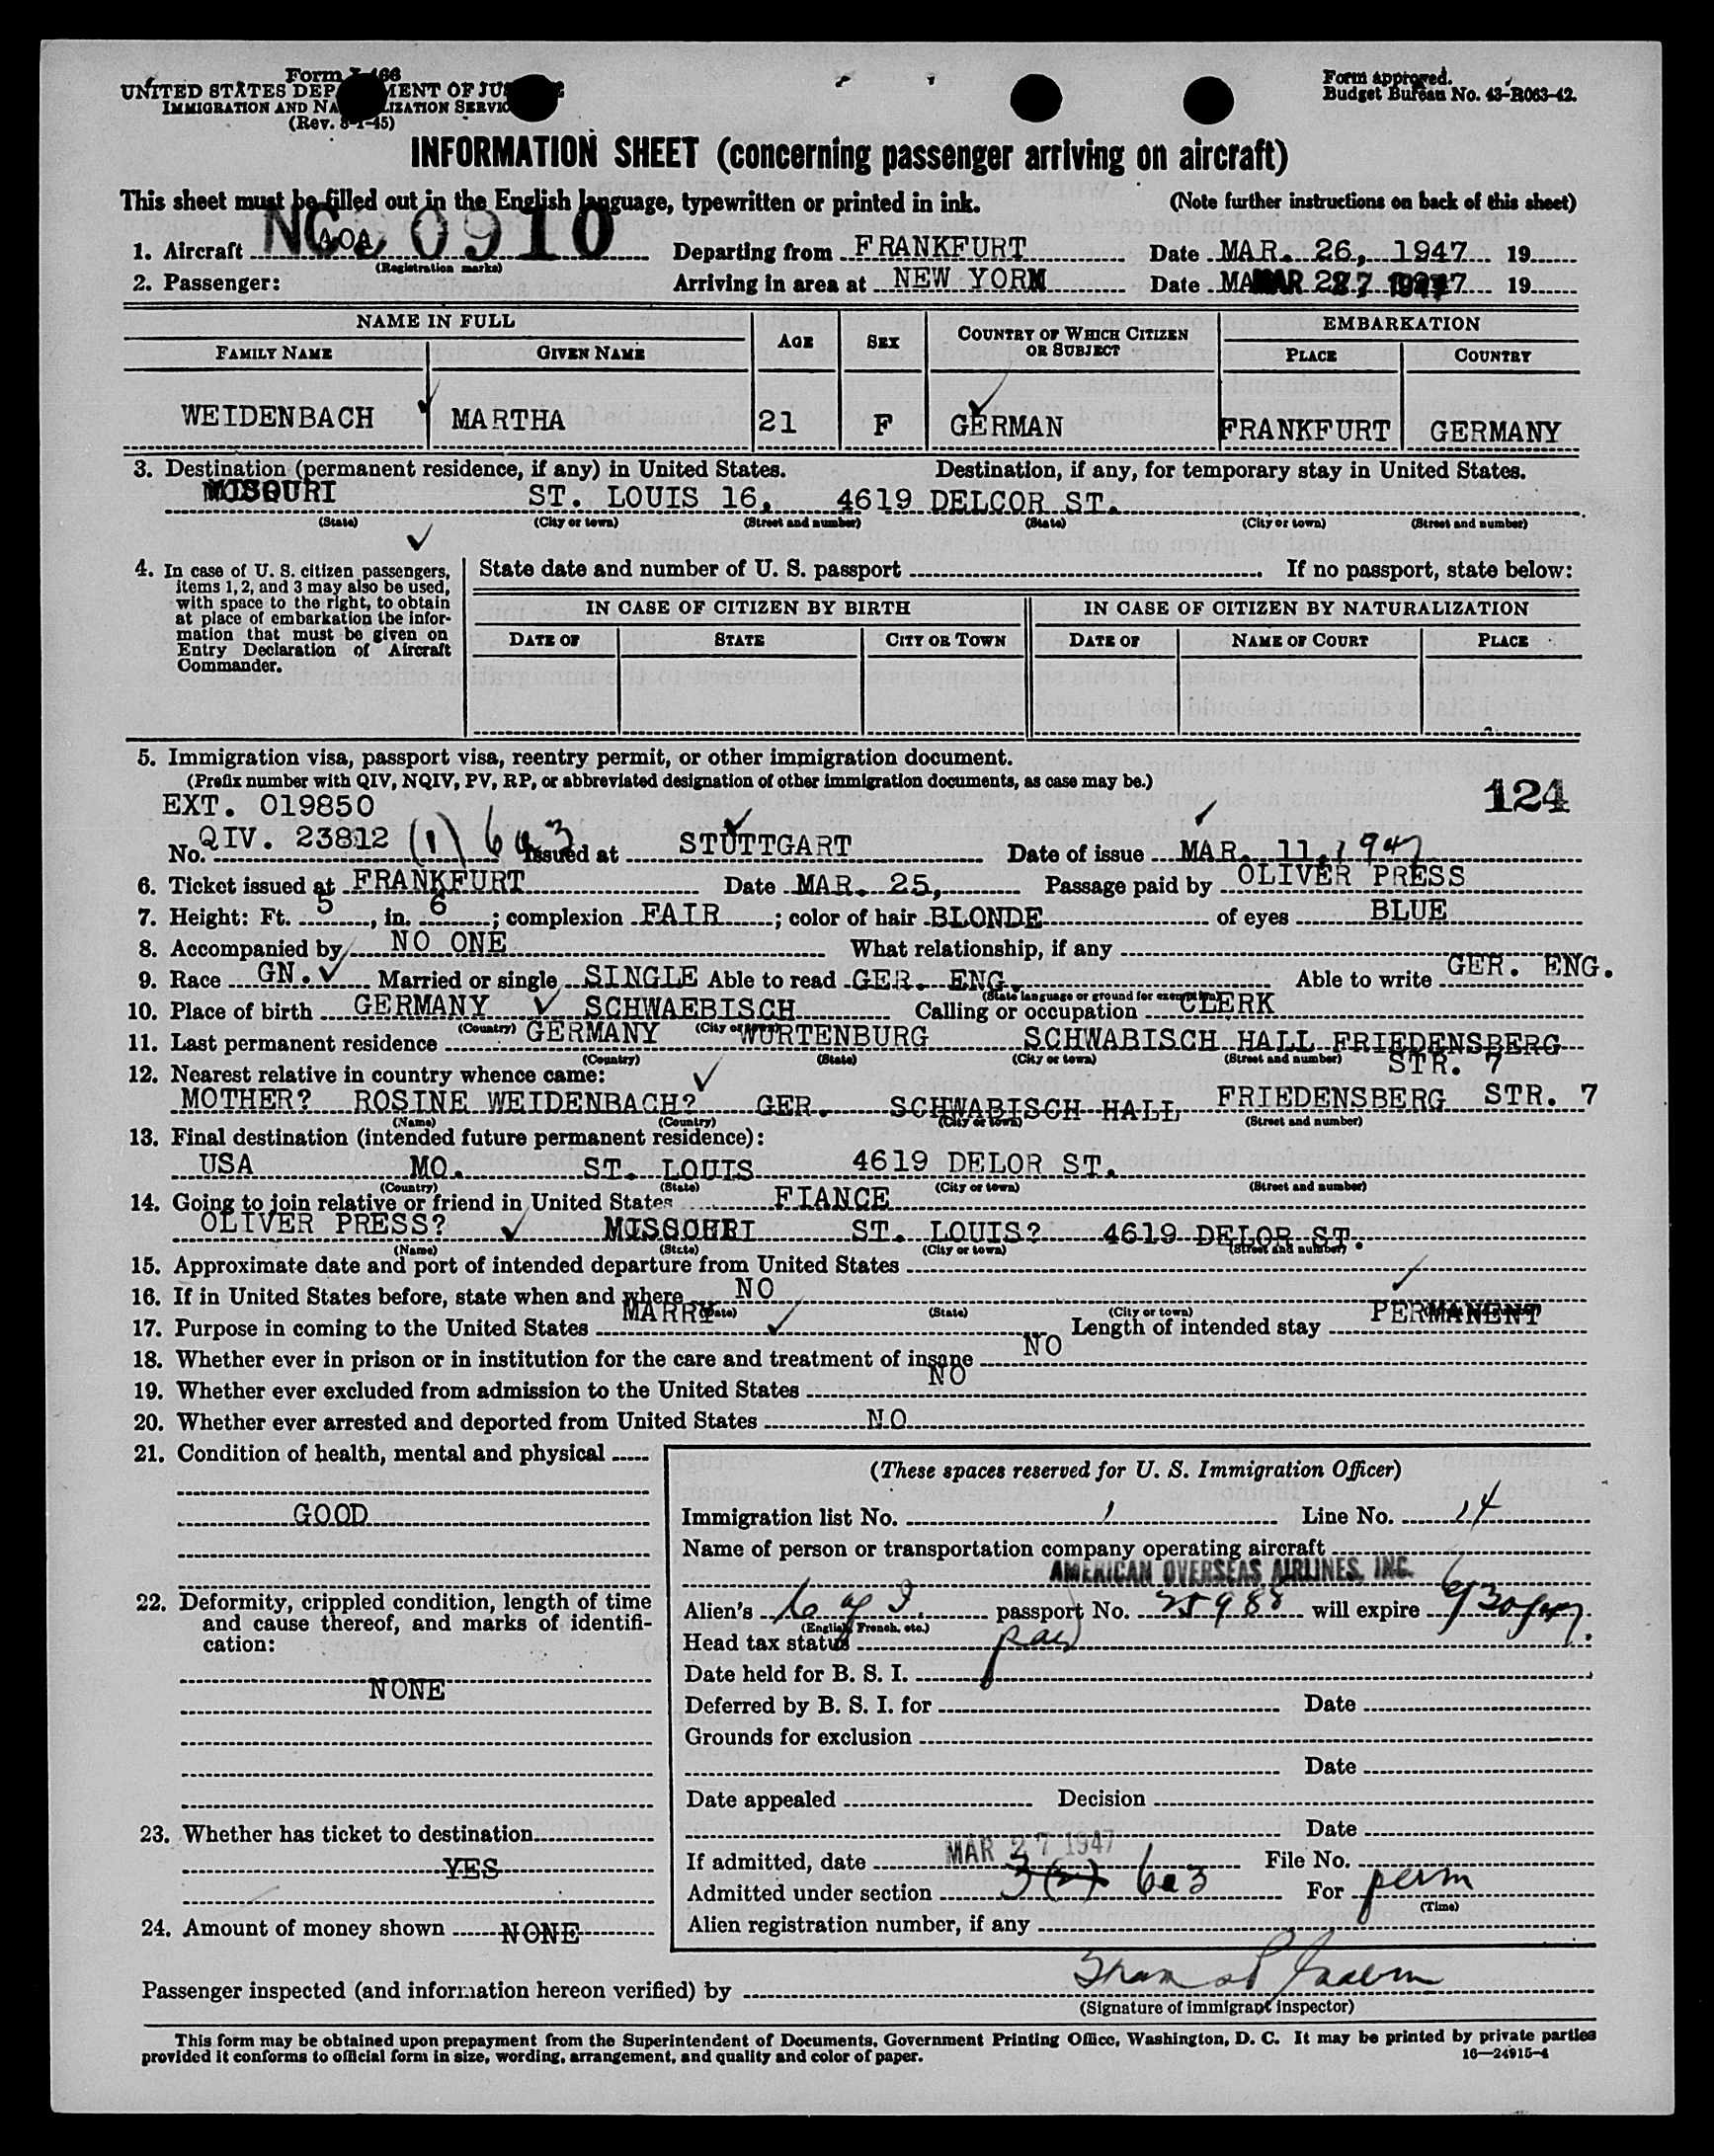 Form I-466
UNITED STATES DEPARTMENT OF JUSTICE
IMMIGRATION AND NATURALIZATION SERVICE
(Rev. 8-1-45)
Form approved.
Budget Bureau No. 43-R063-42.
INFORMATION SHEET (concerning passenger arriving on aircraft)
This sheet must be filled out in the English language, typewritten or printed in ink. (Note further instructions on back of this sheet)
1. Aircraft NC 90910 AOA Departing from FRANKFURT Date MAR. 26, 1947 19
(Registration marks)
2. Passenger: Arriving in area at NEW YORK Date MAR 27 1947 19
NAME IN FULL AGE SEX COUNTRY OF WHICH CITIZEN OR SUBJECT EMBARKATION
FAMILY NAME GIVEN NAME PLACE COUNTRY
WEIDENBACH MARTHA 21 F GERMAN FRANKFURT GERMANY
3. Destination (permanent residence, if any) in United States. Destination, if any, for temporary stay in United States.
MISOURI ST. LOUIS 16, 4619 DELCOR ST.
(State) (City or town) (Street and number) (State) (City or town) (Street and number)
4. In case of U. S. citizen passengers,
items 1, 2, and 3 may also be used,
with space to the right, to obtain
at place of embarkation the infor-
mation that must be given on
Entry Declaration of Aircraft
Commander.
State date and number of U. S. passport If no passport, state below:
IN CASE OF CITIZEN BY BIRTH IN CASE OF CITIZEN BY NATURALIZATION
DATE OF STATE CITY OR TOWN DATE OF NAME OF COURT PLACE
5. Immigration visa, passport visa, reentry permit, or other immigration document.
(Prefix number with QIV, NQIV, PV, RP, or abbreviated designation of other immigration documents, as case may be.)
124
EXT. 019850
No. QIV. 23812 (1) 6a3 Issued at STUTTGART Date of issue MAR. 11, 1947
6. Ticket issued at FRANKFURT Date MAR. 25, Passage paid by OLIVER PRESS
7. Height: Ft. 5, in. 6; complexion FAIR; color of hair BLONDE of eyes BLUE
8. Accompanied by NO ONE What relationship, if any
9. Race GN. Married or single SINGLE Able to read GER. ENG. Able to write GER. ENG.
(State language or ground for exemption)
10. Place of birth GERMANY SCHWAEBISCH Calling or occupation CLERK
(Country) (City or town)
11. Last permanent residence GERMANY WURTENBURG SCHWABISCH HALL FRIEDENSBERG STR. 7
(Country) (State) (City or town) (Street and number)
12. Nearest relative in country whence came:
MOTHER? ROSINE WEIDENBACH? GER. SCHWABISCH HALL FRIEDENSBERG STR. 7
(Name) (Country) (City or town) (Street and number)
13. Final destination (intended future permanent residence):
USA MO. ST. LOUIS 4619 DELOR ST.
(Country) (State) (City or town) (Street and number)
14. Going to join relative or friend in United States FIANCE
OLIVER PRESS? MISSOURI ST. LOUIS? 4619 DELOR ST.
(Name) (State) (City or town) (Street and number)
15. Approximate date and port of intended departure from United States
16. If in United States before, state when and where NO
(Date) (State) (City or town)
17. Purpose in coming to the United States MARRY Length of intended stay PERMANENT
18. Whether ever in prison or in institution for the care and treatment of insane NO
19. Whether ever excluded from admission to the United States NO
20. Whether ever arrested and deported from United States NO
21. Condition of health, mental and physical
GOOD
22. Deformity, crippled condition, length of time
and cause thereof, and marks of identifi-
cation:
NONE
23. Whether has ticket to destination
YES
24. Amount of money shown NONE
(These spaces reserved for U. S. Immigration Officer)
Immigration list No. 1 Line No. 14
Name of person or transportation company operating aircraft
AMERICAN OVERSEAS AIRLINES, INC.
Alien's passport No. 25988 will expire
(English, French, etc.)
Head tax status paid
Date held for B. S. I.
Deferred by B. S. I. for Date
Grounds for exclusion
Date
Date appealed Decision
Date
If admitted, date MAR 27 1947 File No.
Admitted under section 3(2) 6a3 For perm
(Time)
Alien registration number, if any
Passenger inspected (and information hereon verified) by
(Signature of immigrant inspector)
This form may be obtained upon prepayment from the Superintendent of Documents, Government Printing Office, Washington, D. C. It may be printed by private parties
provided it conforms to official form in size, wording, arrangement, and quality and color of paper.
16—24915-4